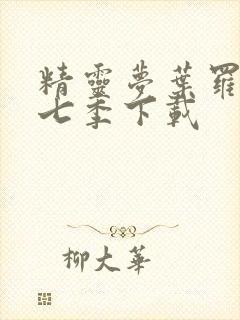 精靈夢葉羅
七季下載
柳大華